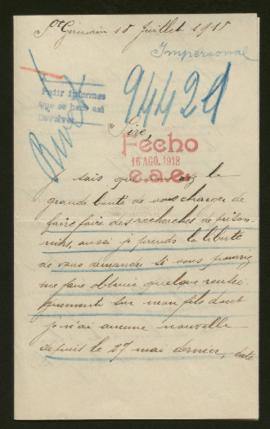 St Germain 18 Juillet 1918
Impersonal
94429
Pedir informes
que se hace así
Sire,
Fecho
16 AGO. 1918
c.a.e.
Je sais que la
grande bonté de vous charger de
faire faire des recherches de prison-
niers aussi je prends la liberté
de vous demander si vous pourriez
me faire obtenir quelque rensei-
gnement sur mon fils dont
je n'ai aucune nouvelle
depuis le 27 mai dernier,